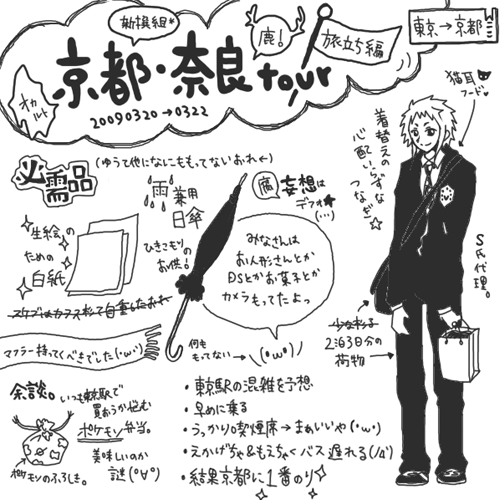 新撰組*
鹿!
旅立ち編
東京→京都
京都・奈良tour
20090320→0322
オカルト
猫耳
フード♥
着替えの
心配いらずな
つなぎ☆
必需品
(ゆうて他になにももってないおれ←)
雨兼用
日傘
ひきこもり
のお供!
腐 妄想は
デフォ☆
(…)
生絵の
ための
白紙
みなさんは
お人形さんとか
DSとかお菓子とか
カメラもってたよっ
S氏代理。
マフラー持ってくべきでした(・ω・`)
何も
もってない→\(・ω・)/
2泊3日分の
荷物
余談。
いつも東京駅で
買おうか悩む
ポケモン弁当。
美味しいのか
謎(°∀°)
ポケモンのふろしき。
・東京駅の混雑を予想
・早めに乗る
・うっかり喫煙席→まぁいいや(・ω・)
・えかげちゃ&もえちゃくバス遅れる(ノД`)
・結果京都に1番のり☆